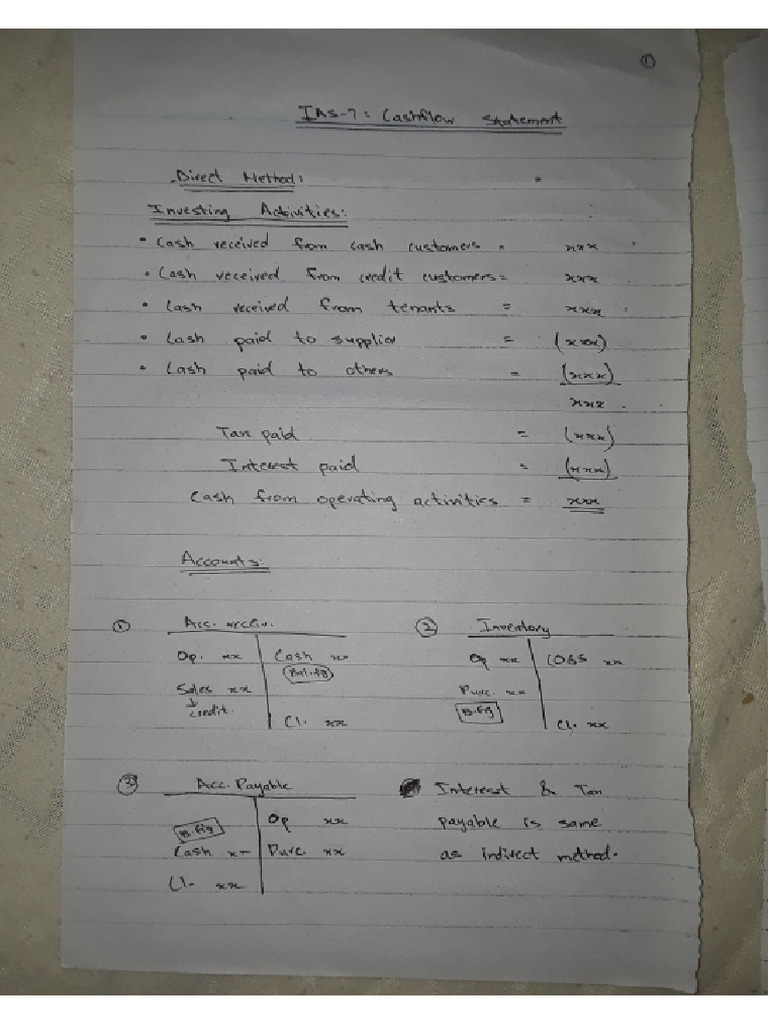 ①
IAS-7: Cashflow Statement
Direct Method:
Investing Activities:
• Cash received from cash customers = xxx
• Cash received from credit customers = xxx
• Cash received from tenants = xxx
• Cash paid to supplier = (xxx)
• Cash paid to others = (xxx)
xxx
Tax paid = (xxx)
Interest paid = (xxx)
Cash from operating activities = xxx
Accounts:
① Acc. receiv.
Op. xx Cash xx
Bal. fig
Sales xx
↓ credit.
Cl. xx
② Inventory
Op xx COGS xx
Purc. xx
B.fig
Cl. xx
③ Acc. Payable
Op xx
B.fig
Cash xx Purc. xx
Cl. xx
Interest & Tax
payable is same
as indirect method.